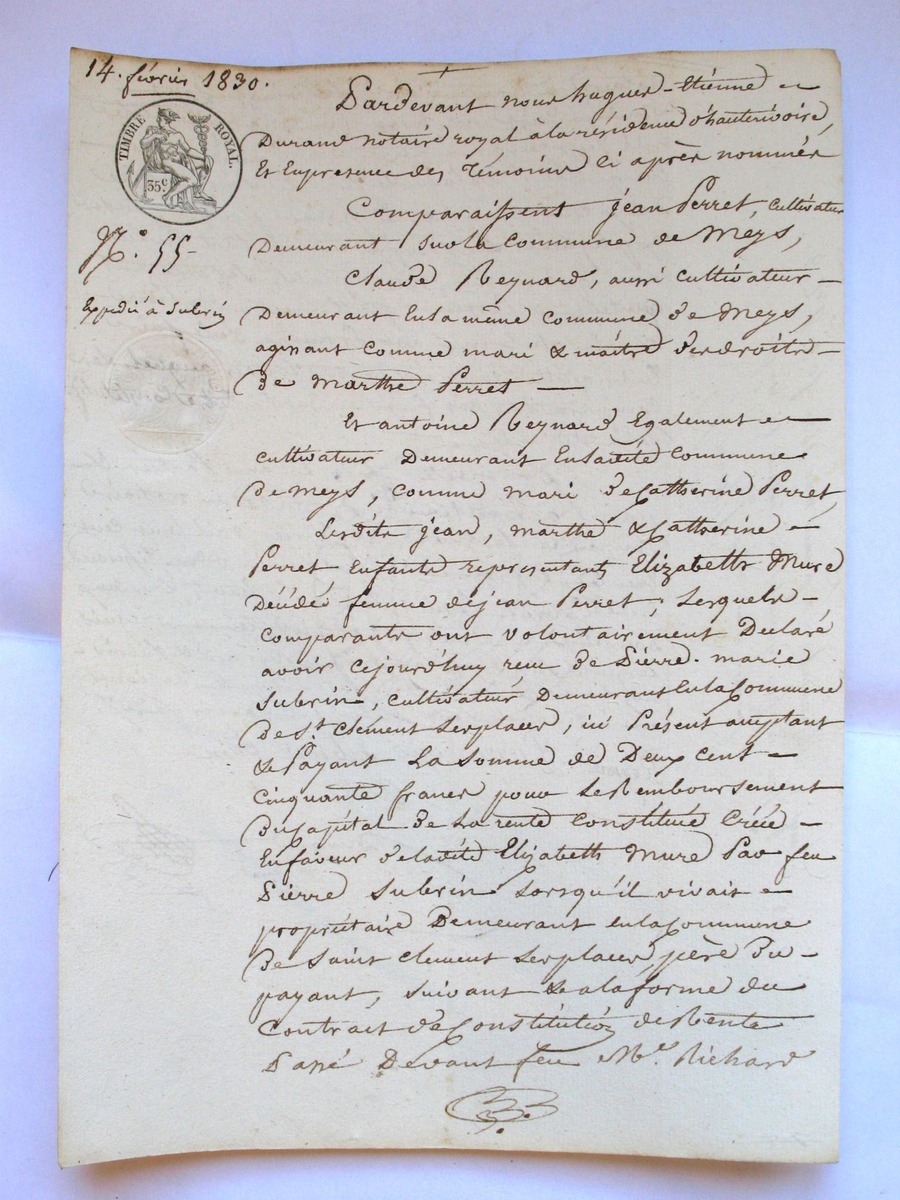 14. février 1830.
TIMBRE ROYAL.
35c
N.° 55
Expédié à Subrin
Pardevant nous hugues-étienne
Durand notaire royal à la résidence d'hauterivoire,
Et En presence des témoins ci après nommés
Comparaissent jean Perret, cultivateur
Demeurant sur la commune de Meys,
Claude Reynard, aussi cultivateur
Demeurant En la même commune de Meys,
agissant comme mari & maître des droits
de marthe Perret
Et antoine Reynard Egalement
cultivateur Demeurant En la dite commune
de Meys, comme mari de Catherine Perret,
Lesdits jean, marthe & Catherine
Perret Enfants représentants Elizabeth Mure
Décédée femme de jean Perret; Lesquels
comparants ont volontairement Déclaré
avoir cejourd'huy reçu de Pierre-marie
Subrin, cultivateur Demeurant En la Commune
de St. clément les places, ici Présent acceptant
& Payant La Somme de Deux cent
cinquante francs pour le Remboursement
du Capital de la rente constituée Créée
En faveur de la dite Elizabeth Mure Par feu
Pierre Subrin Lorsqu'il vivait
propriétaire Demeurant en la Commune
de Saint clément les places, père du
payant, suivant & a la forme du
Contrat de Constitution de Rente
Passé Devant feu Me. Richard